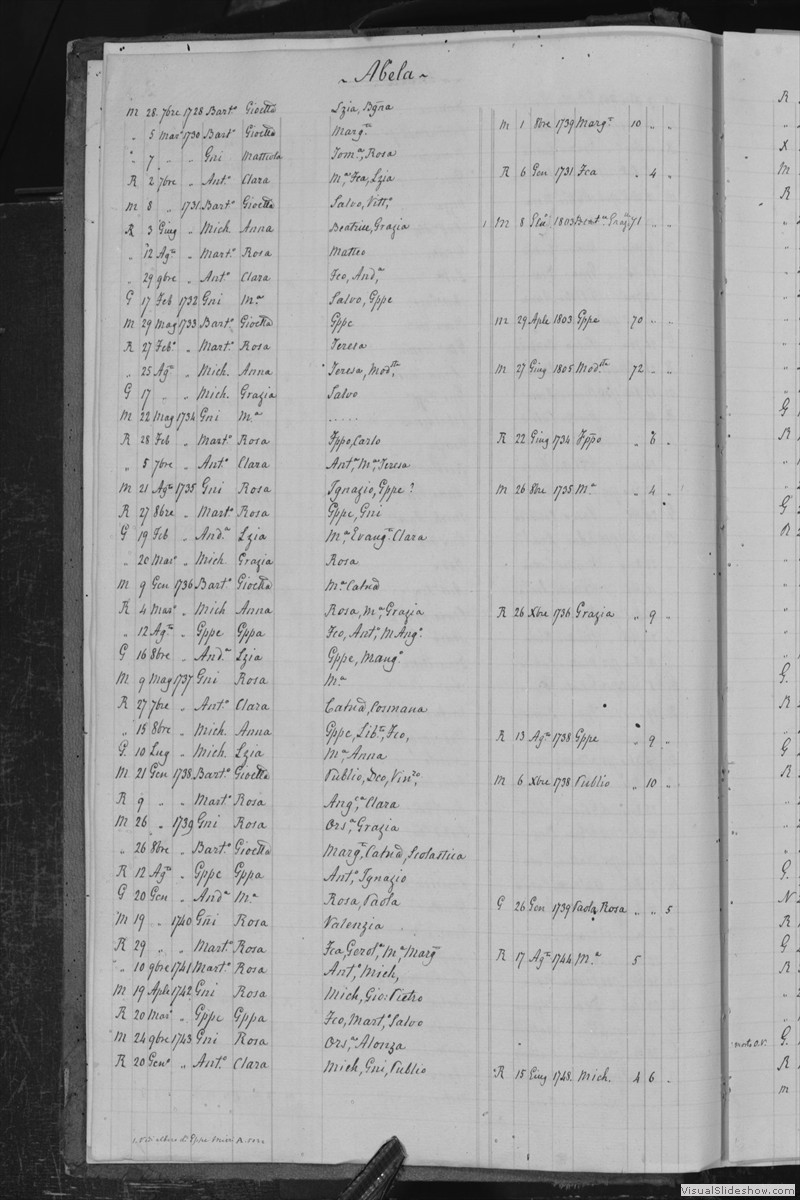 ~ Abela ~
M 28 7bre 1728 Bart.o Gioetta Lzia, Bgna
„ 5 Mar.o 1730 Bart.o Gioetta Marg.ta M 1 8bre 1739 Marg.ta 10 „ „
„ 7 „ „ Gni Mattiola Tom.a, Rosa
R 2 7bre „ Ant.o Clara M.a, Fca, Lzia R 6 Gen 1731 Fca „ 4 „
M 8 „ 1731 Bart.o Gioetta Salvo, Vitt.a
R 3 Giug „ Mich Anna Beatrice, Grazia 1 M 8 1803 71 „ „
„ 12 Ag.to „ Mart.o Rosa Matteo
„ 29 9bre „ Ant.o Clara Fco, And.a
G 17 Feb 1732 Gni M.a Salvo, Gppe
M 29 Mag 1733 Bart.o Gioetta Gppe M 29 Aple 1803 Gppe 70 „ „
R 27 Feb.o „ Mart.o Rosa Teresa
„ 25 Ag.to „ Mich. Anna Teresa, Mod.tta M 27 Giug 1805 Mod.tta 72 „ „
G 17 „ „ Mich. Grazia Salvo
M 22 Mag 1734 Gni M.a .....
R 28 Feb „ Mart.o Rosa Fppo, Carlo R 22 Giug 1734 Fppo „ 6 „
„ 5 7bre „ Ant.o Clara Ant.a, M.a, Teresa
M 21 Ag.to 1735 Gni Rosa Ignazio, Gppe ? M 26 8bre 1735 M.a „ 4 „
R 27 8bre „ Mart.o Rosa Gppe, Gni
G 19 Feb „ And.a Lzia M.a, Evang.ta Clara
„ 20 Mar.o „ Mich Grazia Rosa
M 9 Gen 1736 Bart.o Gioetta M.a Catna
R 4 Mar.o „ Mich Anna Rosa, M.a, Grazia R 26 Xbre 1736 Grazia „ 9 „
„ 12 Ag.to „ Gppe Gppa Fco, Ant.o, M Ang.o
G 16 8bre „ And.a Lzia Gppe, Mang.o
M 9 Mag 1737 Gni Rosa M.a
R 27 7bre „ Ant.o Clara Catna, Cosmana
„ 15 8bre „ Mich. Anna Gppe, Lib.ta, Fco, R 13 Ag.to 1738 Gppe „ 9 „
G. 10 Lug „ Mich. Lzia M.a, Anna
M 21 Gen 1738 Bart.o Gioetta Publio, Dco, Vin.zo, M 6 Xbre 1738 Publio „ 10 „
R 9 „ „ Mart.o Rosa Ang.a, Clara
M 26 „ 1739 Gni Rosa Ors.a, Grazia
„ 26 8bre „ Bart.o Gioetta Marg.ta, Catna, Scolastica
R 12 Ag.to „ Gppe Gppa Ant.o, Ignazio
G 20 Gen „ And.a M.a Rosa, Paola G 26 Gen 1739 Paola Rosa „ „ 5
M 19 „ 1740 Gni Rosa Valenzia
R 29 „ „ Mart.o Rosa Fca, Gerol.a, M.a, Marg.ta R 17 Ag.to 1744 M.a 5
„ 10 9bre 1741 Mart.o Rosa Ant.o, Mich,
M 19 Aple 1742 Gni Rosa Mich, Gio: Pietro
R 20 Mar.o „ Gppe Gppa Fco, Mart.o, Salvo
M 24 9bre 1743 Gni Rosa Ors.a, Alonza
R 20 Gen.o „ Ant.o Clara Mich, Gni, Publio R 15 Giug 1748 Mich. 4 6 „
VisualSlideshow.com